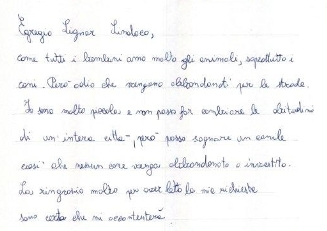 Egregio Signor Sindaco,
come tutti i bambini amo molto gli animali, soprattutto i
cani. Però odio che vengano abbandonati per le strade.
Io sono molto piccola e non posso far cambiare le abitudini
di un'intera città, però posso sognare un canile
così che nessun cane venga abbandonato o investito.
La ringrazio molto per aver letto la mia richiesta
sono certa che mi accontenterà.